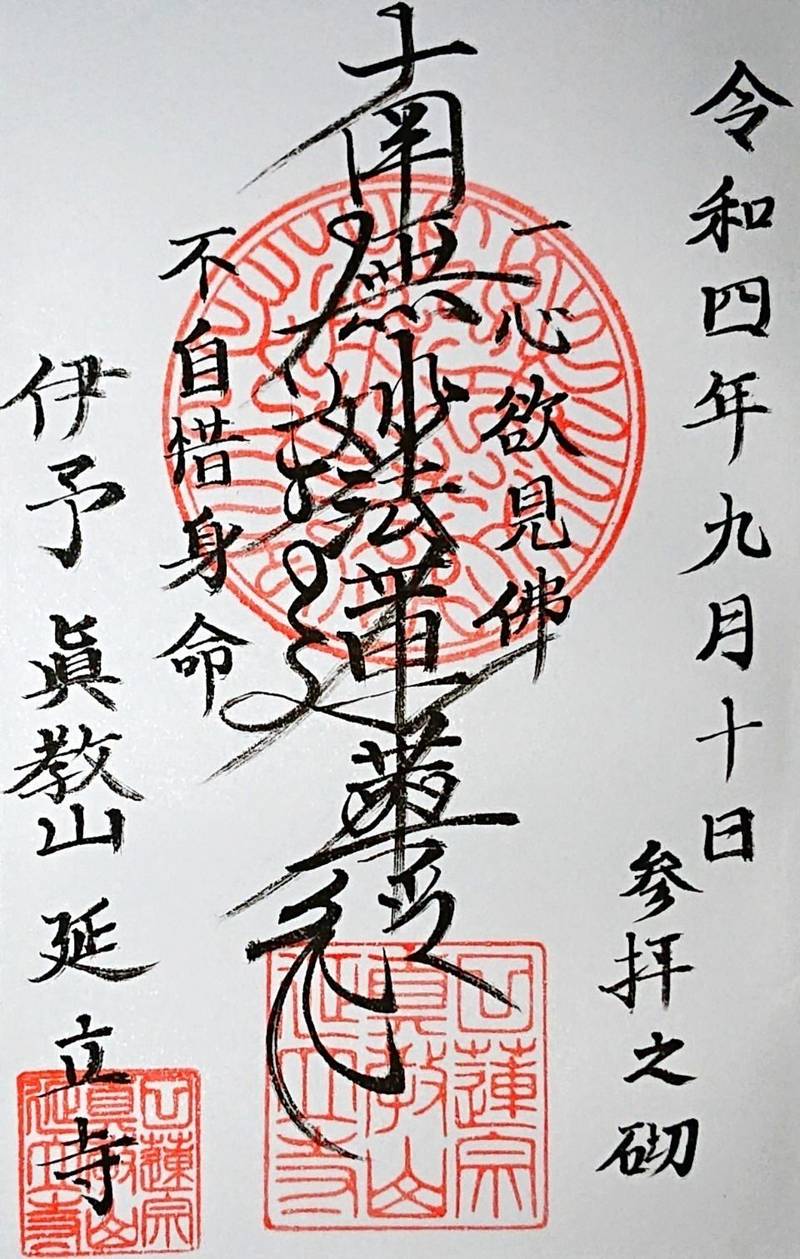 令和四年九月十日
参拝之砌
一心欲見佛
南無妙法蓮華経
不自惜身命
伊予 眞教山 延立寺
日蓮宗
眞教山
延立寺
日蓮宗
眞教山
延立寺